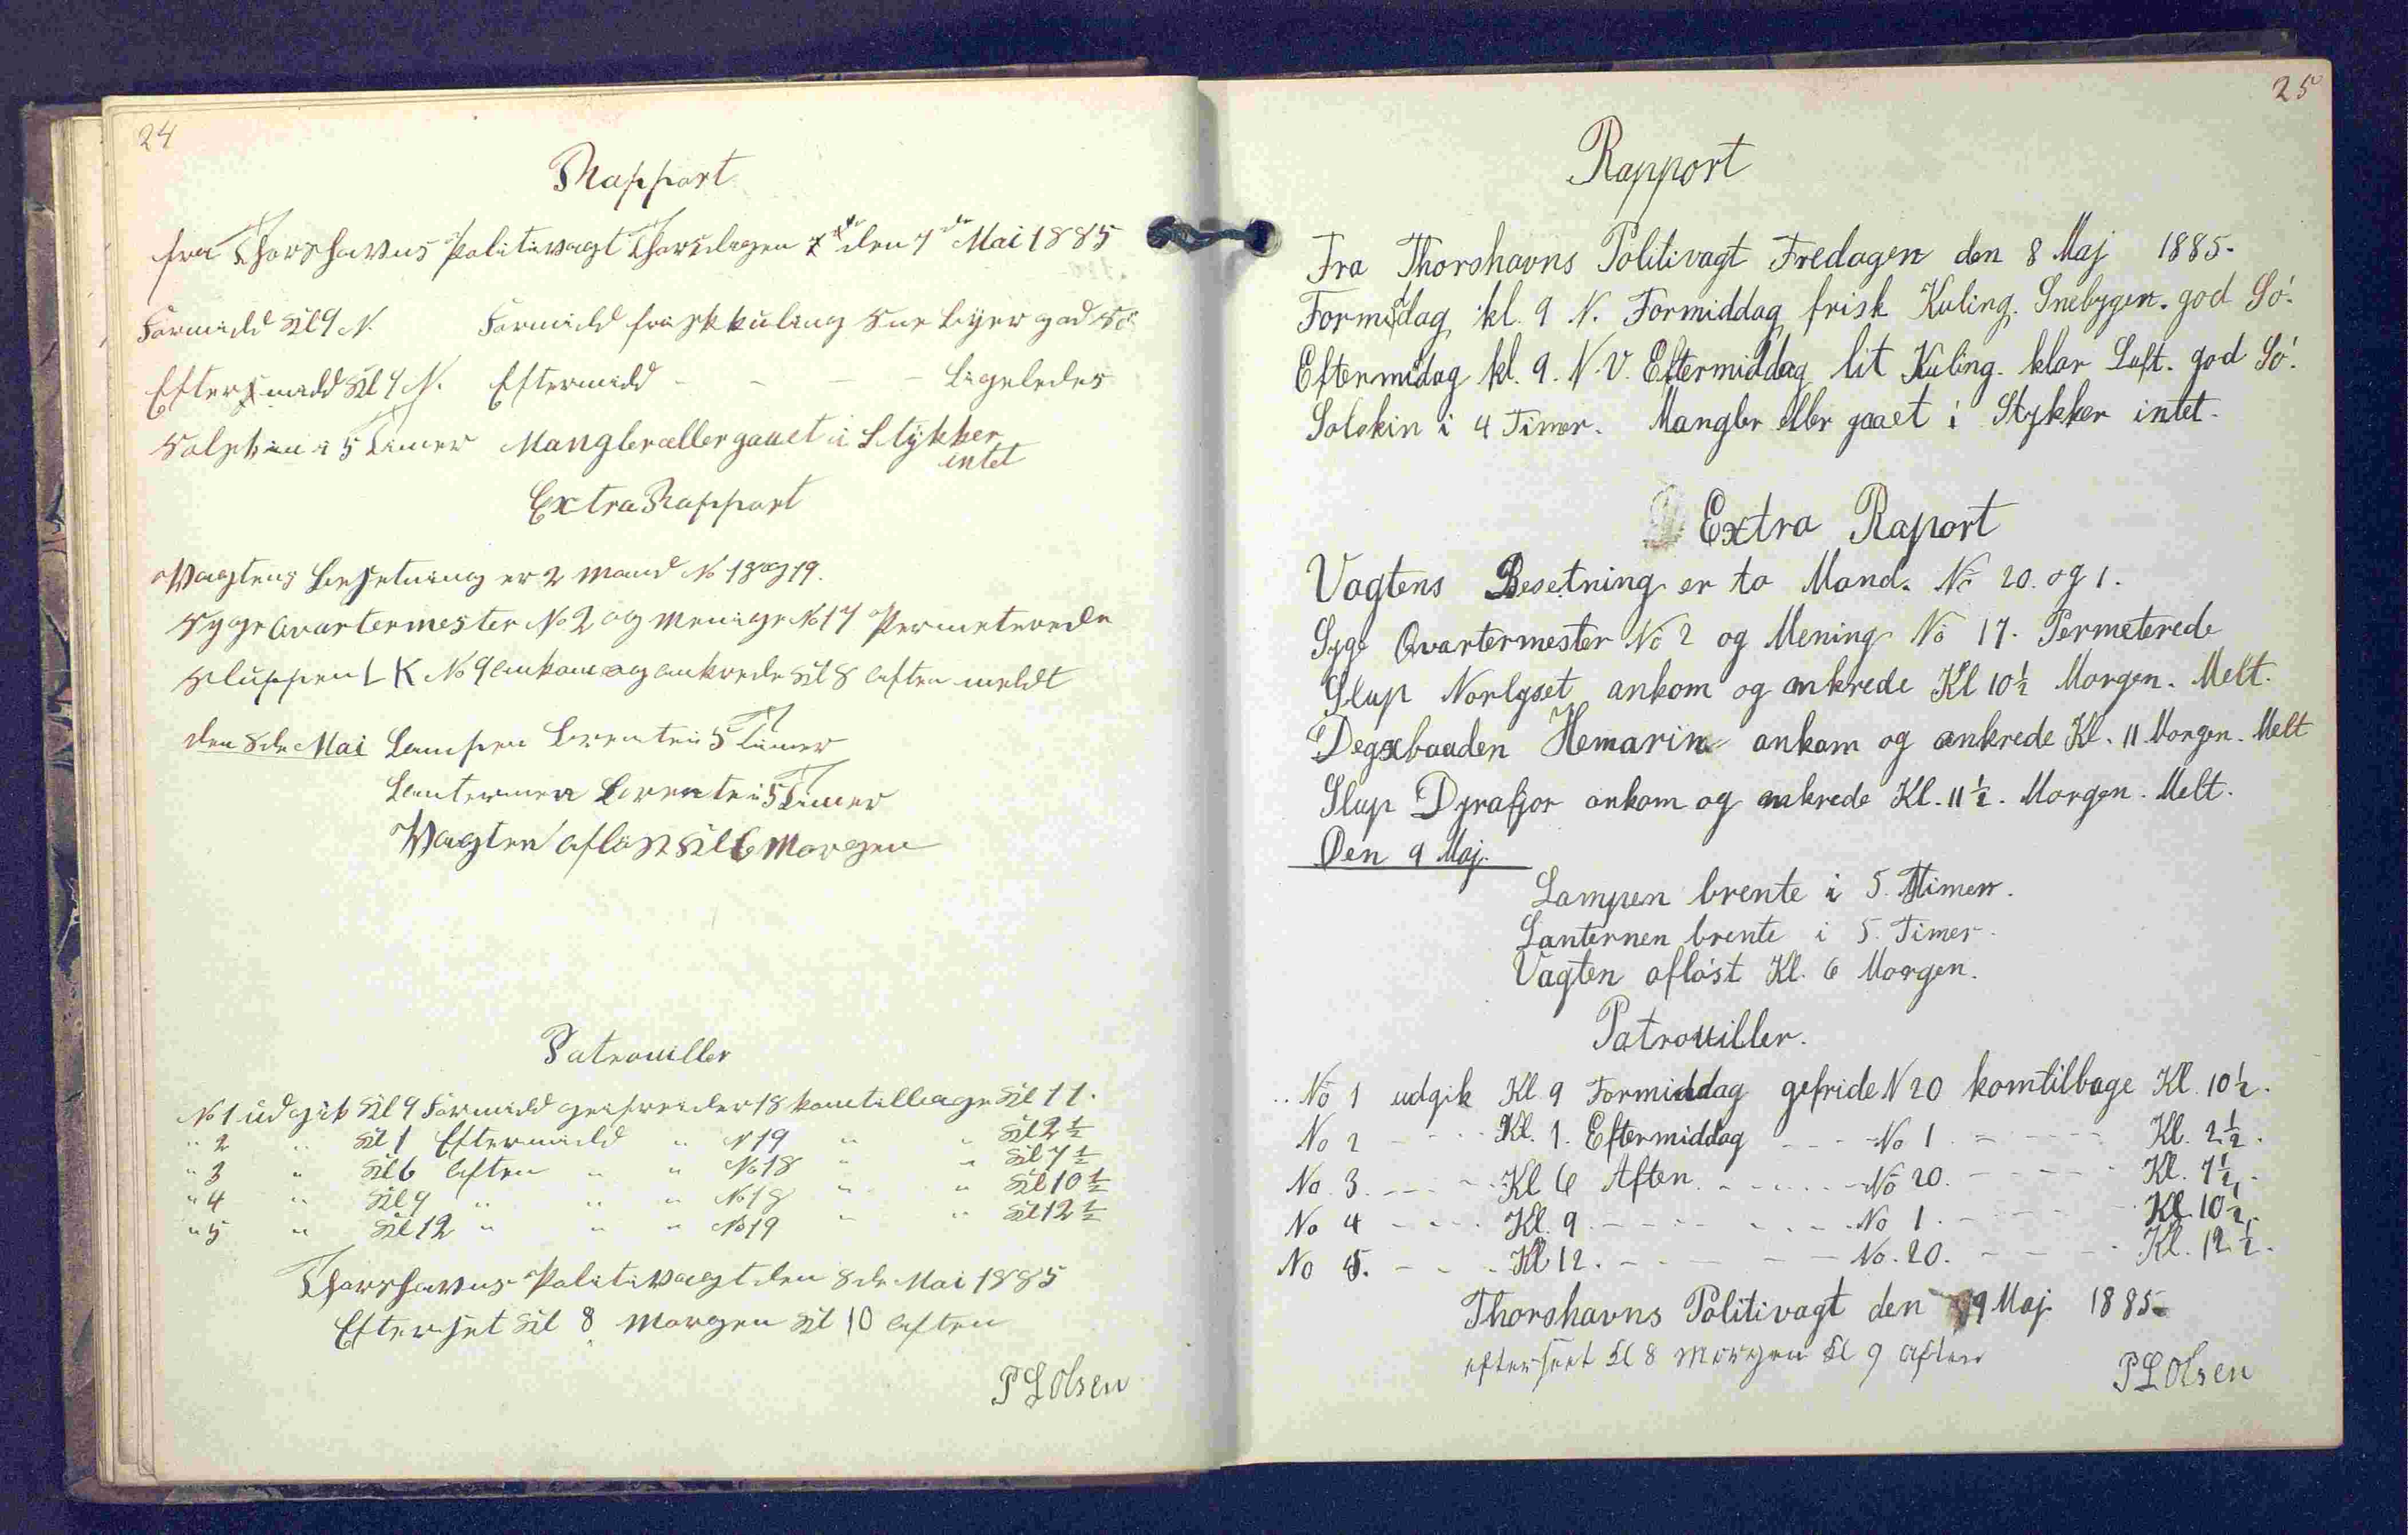 24
Rapport
fra Thorshavns Politivagt Thorsdagen den 7de Mai 1885
Formidd Kl 9 N. Formidd frisk kuling Sne Byer god Sö
Eftermidd Kl 9 N. Eftermidd - - - - Ligeledes
Solskin i 5 Timer Mangler eller gaaet i Stÿkker
intet
Extra Rapport
Vagtens Besetning er 2 Mand No 18 og 19.
Syge Qvartermester No 2 og Menige No 17 Permeterede
Sluppen L K No 9 ankom og ankrede Kl 8 Aften meldt
den 8de Mai Lampen Brente i 5 Timer
Lanternen Brente i 5 Timer
Vagten Aflöst Kl 6 Morgen
Patrouiller
No 1 udgik Kl 9 Formidd gefreider 18 kom tilbage Kl 11.
" 2 " Kl 1 Eftermidd " N 19 " " Kl 2 1/2
" 3 " Kl 6 Aften " " No 18 " " Kl 7 1/2
" 4 " Kl 9 " " " No 18 " " Kl 10 1/2
" 5 " Kl 12 " " " No 19 " " Kl 12 1/2
Thorshavns Politivagt den 8de Mai 1885
Efterset Kl 8 Morgen Kl 10 Aften
P L Olsen
25
Rapport
Fra Thorshavns Politivagt Fredagen den 8 Maj 1885-
Formidag kl. 9 N. Formiddag frisk Kuling. Snebygen. god Só.
Eftermidag kl. 9. N.V. Eftermiddag lit Kuling. klar Luft. god Só.
Solskin i 4 Timer. Mangler eller gaaet i Stykker intet.
Extra Raport
Vagtens Besetning er to Mand. No 20. og 1.
Syge Qvartermester No 2 og Mening No 17. Permeterede
Slup Norlyset ankom og ankrede Kl 10 1/2 Morgen. Melt.
Degxbaaden Hemarine ankam og ankrede Kl. 11 Morgen. Melt
Slup Dyrafjor ankom og ankrede Kl. 11 1/2. Morgen. Melt.
Den 9 Maj.
Lampen brente i 5. Timer.
Lanternen brente i 5. Timer.
Vagten aflóst Kl. 6 Morgen.
Patrouiller.
No 1 udgik Kl 9 Formiddag gefride N 20 komtilbage Kl. 10 1/2.
No 2 - - - Kl. 1. Eftermiddag - - - No 1. - - - Kl. 2 1/2.
No. 3. - - - Kl 6 Aften. - - - No 20. - - - Kl. 7 1/2.
No 4 - - - Kl. 9. - - - No 1. - - - Kl. 10 1/2.
No 5. - - - Kl 12. - - - No. 20. - - - Kl. 12 1/2.
Thorshavns Politivagt den 9 Maj 1885-
efterseet Kl 8 Morgen Kl 9 Aften
P L Olsen